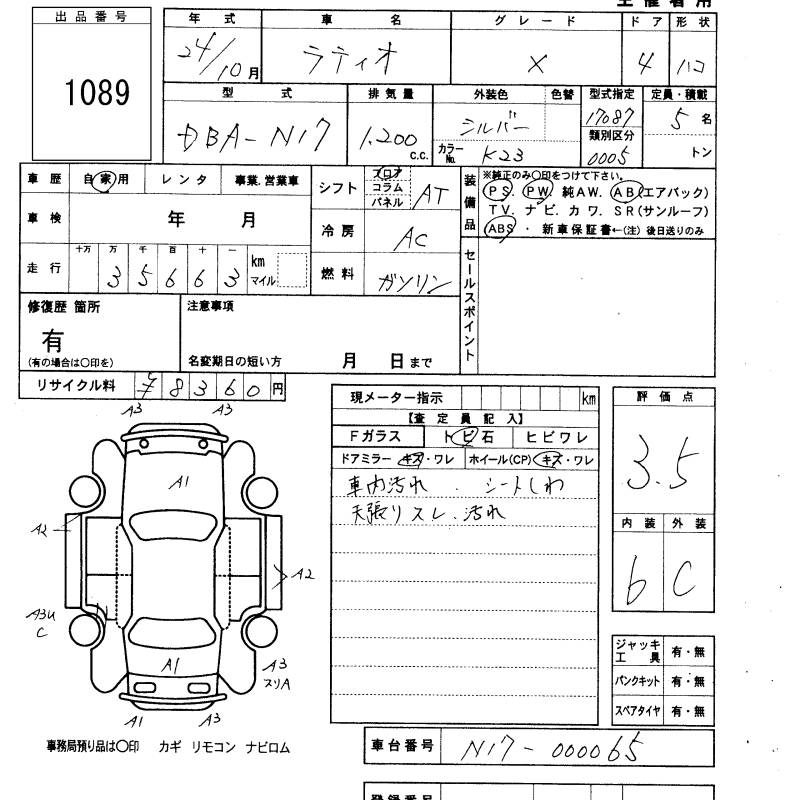 主催者用
出品番号
1089
年式 車名 グレード ドア 形状
24/10月 ラティオ X 4 ハコ
型式 排気量 外装色 色替 型式指定 定員・積載
DBA-N17 1.200 c.c. シルバー 17087 5名
カラーNo. K23 類別区分 0005 トン
車歴 自家用 レンタ 事業.営業車 シフト フロア コラム パネル AT
装備品 ※純正のみ○印をつけて下さい。
PS PW 純AW. AB(エアバック)
TV. ナビ. カワ. SR(サンルーフ)
ABS ・新車保証書←(注)後日送りのみ
車検 年 月 冷房 AC
走行 十万 万 千 百 十 一
35663 km マイル 燃料 ガソリン
セールスポイント
修復歴 箇所 注意事項
有
(有の場合は○印を) 名変期日の短い方 月 日まで
リサイクル料 ¥8360円
現メーター指示 km
【査定員記入】
Fガラス トビ石 ヒビワレ
ドアミラー キズ・ワレ ホイール(CP) キズ・ワレ
車内汚れ . シートしわ
天張りスレ.汚れ
評価点
3.5
内装 外装
6 C
A3 A3
A1
A2
A2
A3U
C
A1
A3
スリA
A1 A3
ジャッキ工具 有・無
パンクキット 有・無
スペアタイヤ 有・無
事務局預り品は○印 カギ リモコン ナビロム
車台番号 N17-000065
登録番号